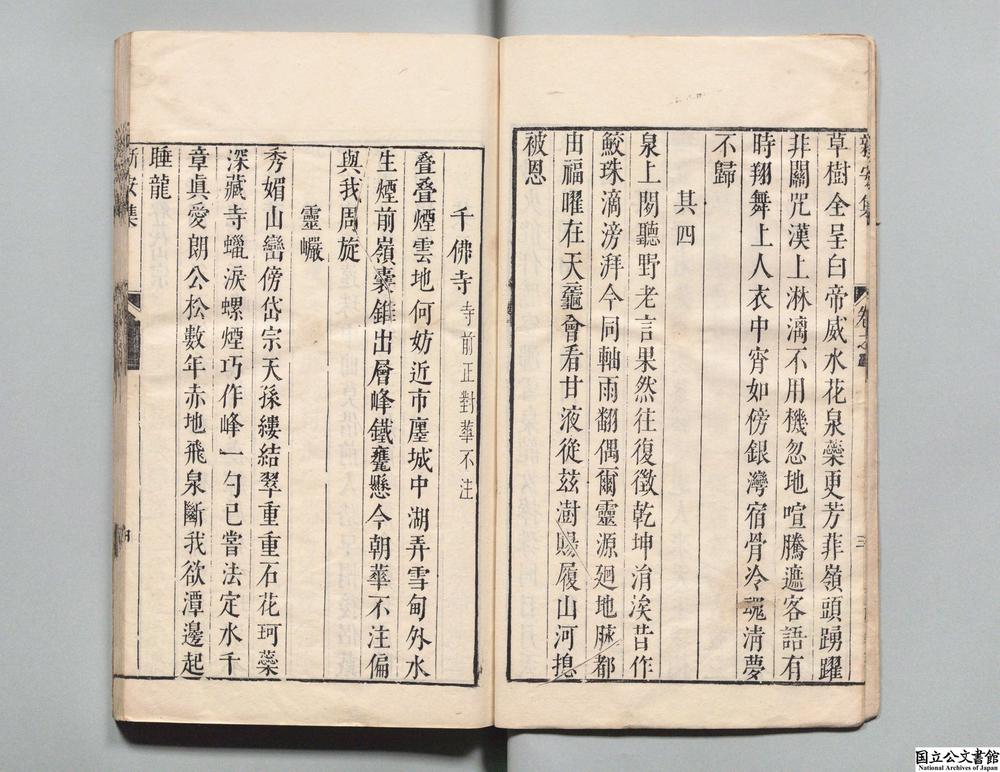 草樹全呈白帝威水花泉藥更芳菲嶺頭踴躍
非關咒漢上淋漓不用機忽地喧騰遮客語有
時翔舞上人衣中宵如傍銀灣宿骨冷魂清夢
不歸
其四
泉上閱聽野老言果然往復徵乾坤涓涘昔作
鮫珠滴滂湃今同軸雨翻偶爾靈源廻地脉都
由福曜在天龜會看甘液從茲澍賜履山河摠
被恩
千佛寺寺前正對華不注
叠叠煙雲地何妨近市廛城中湖弄雪甸外水
生煙前嶺囊錐出層峰鐵甕懸今朝華不注偏
與我周旋
靈巗
秀媚山巒傍岱宗天孫縷結翠重重石花珂蘂
深藏寺蠟淚螺煙巧作峰一勺已嘗法定水千
章眞愛朗公松數年赤地飛泉斷我欲潭邊起
睡龍
国立公文書館
National Archives of Japan